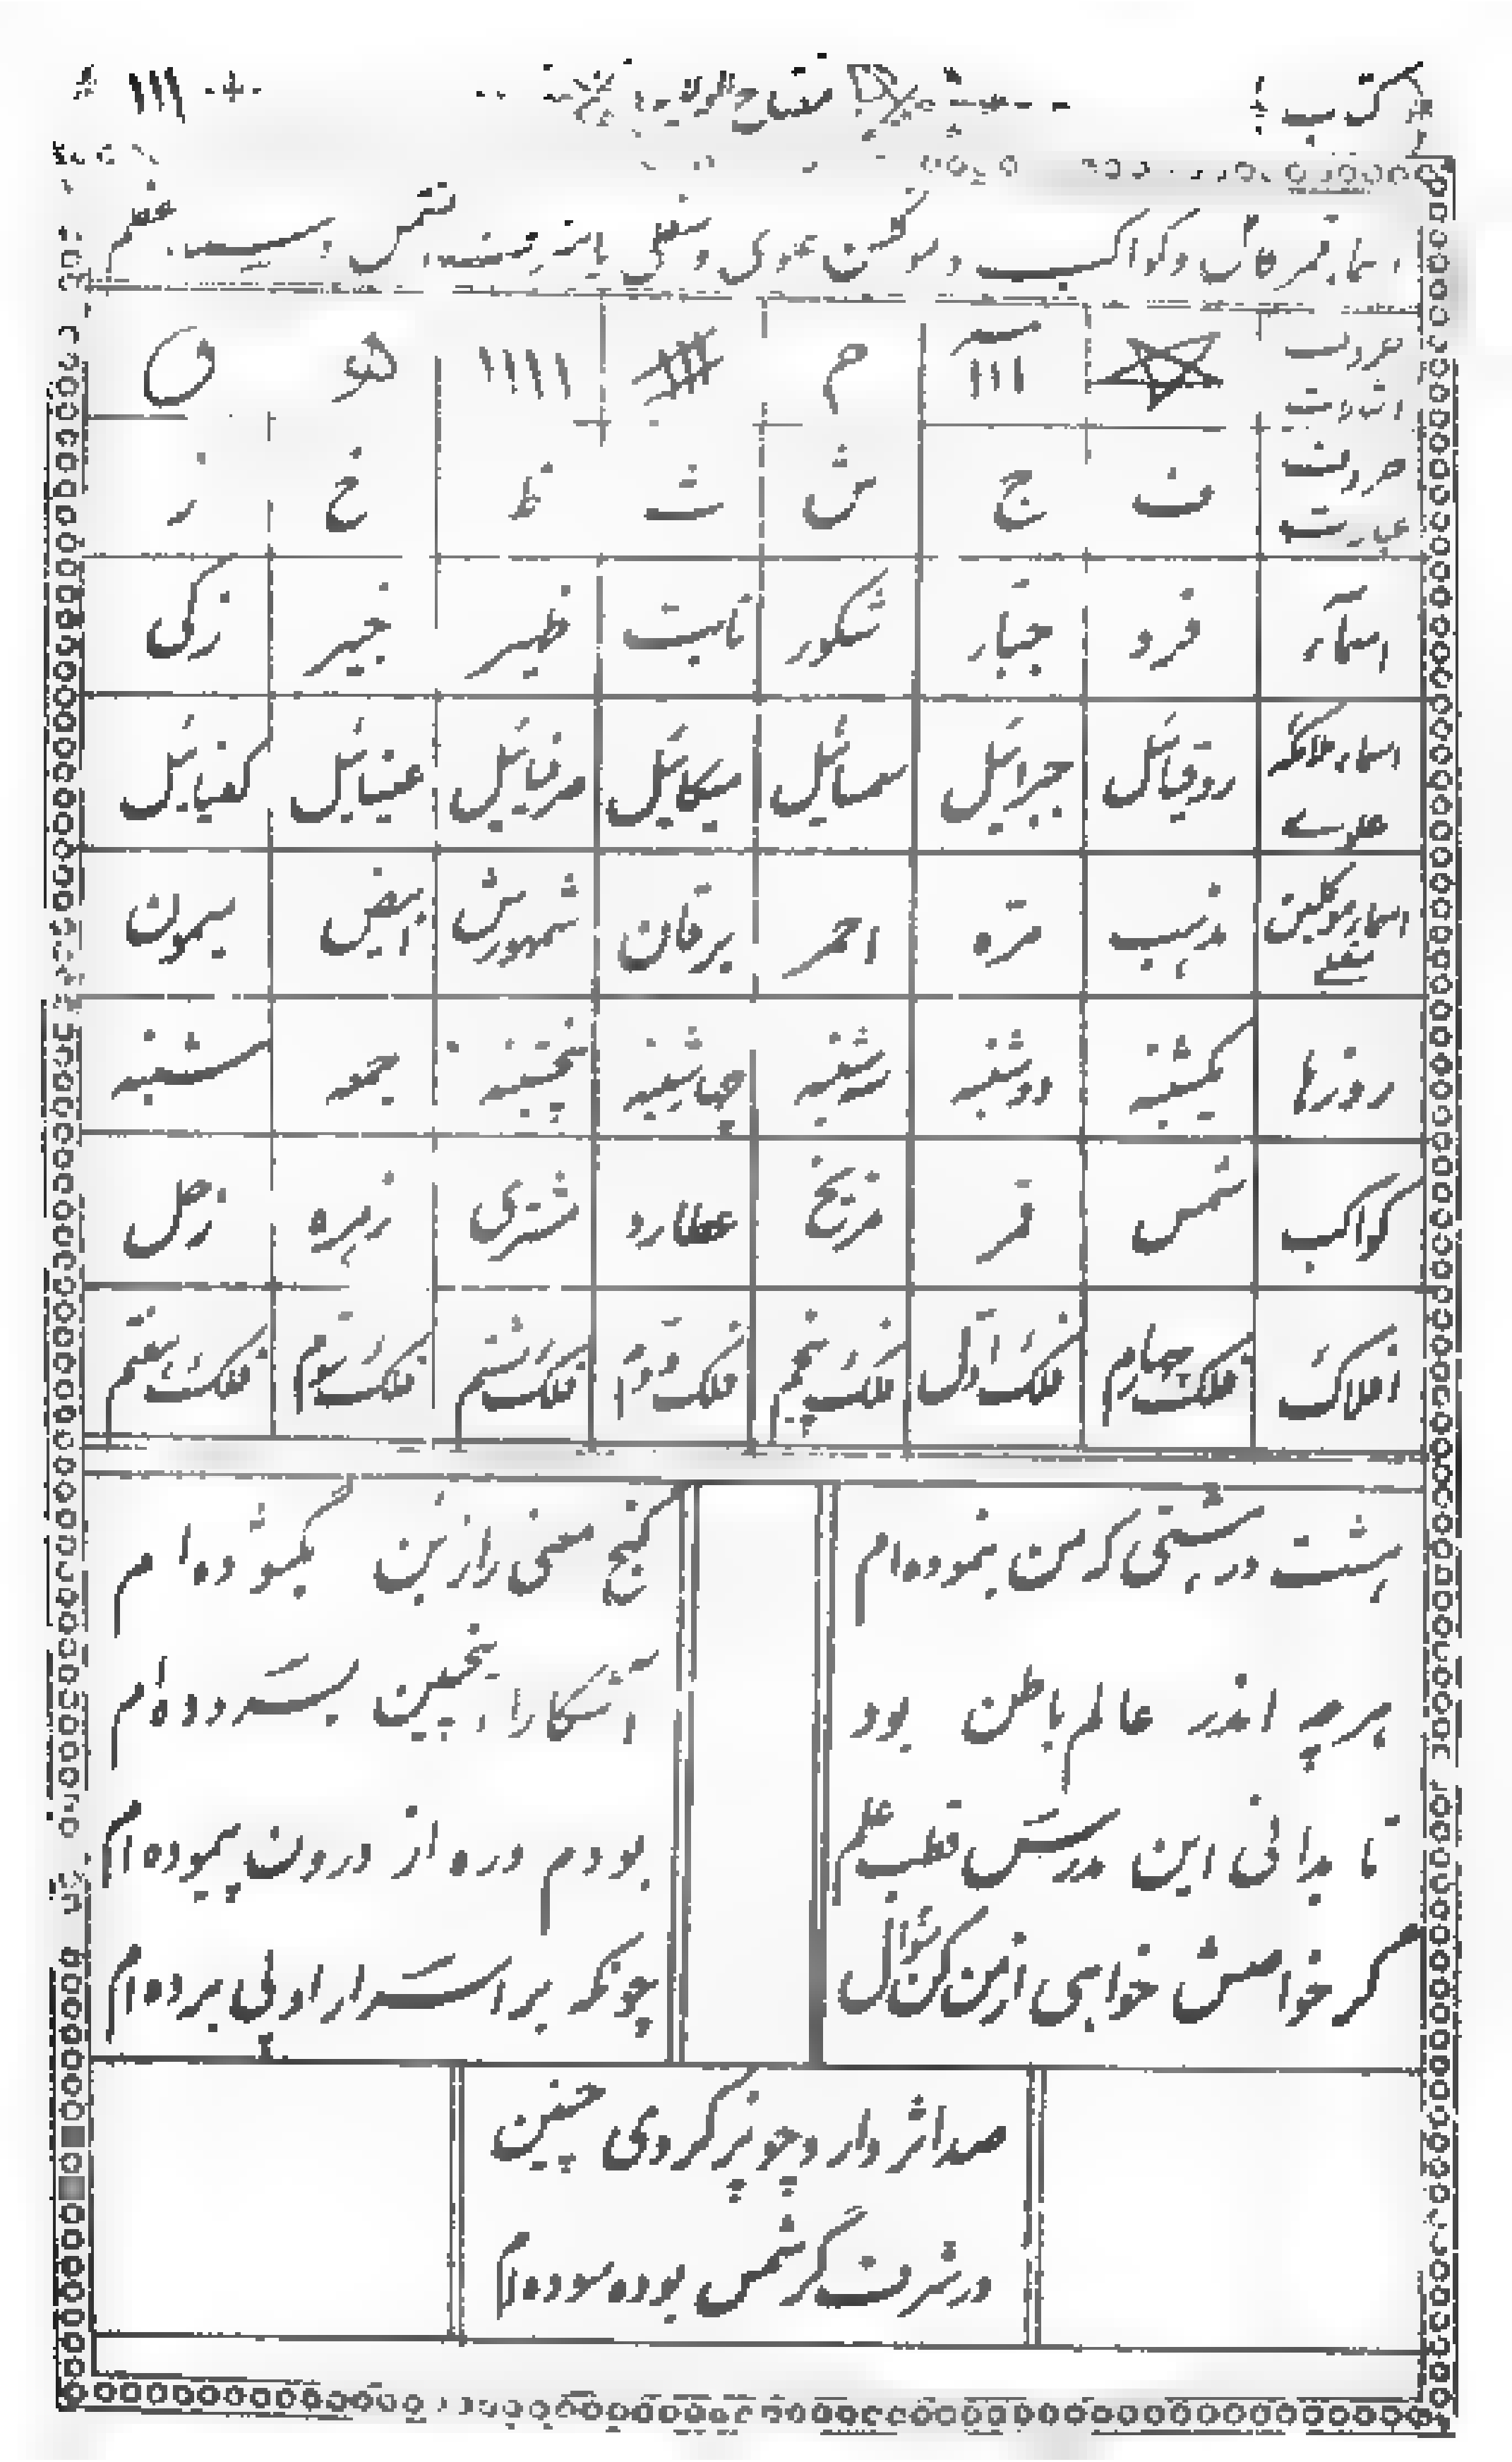 کتاب مفتاح الولایه ۱۱۱
و کواکب و موکلین علوی و سفلی با
حروف اشارت م ۱۱۱۱
حروف عبارت ف ج ش ث ظ خ ز
اسمآء فرد جبّار شکور ثابت ظهیر خبیر زکی
اسماء ملائکه علوی روقیائیل جبرائیل سمسائیل میکائیل صرفیائیل عنیائیل کسفیائیل
اسماء موکلین سفلی مذهب مرّه احمر برقان شمهورش ابیض میمون
روزها یکشنبه دوشنبه سه شنبه چهارشنبه پنجشنبه جمعه شنبه
کواکب شمس قمر مریخ عطارد مشتری زهره زحل
افلاک فلک چهارم فلک اوّل فلک پنجم فلک دوّم فلک ششم فلک سوّم فلک هفتم
هشت در هشتی که من بنموده‌ام گنج معنی را ز بگشوده‌ام
هر چه اندر عالم باطن بود آشکارا
تا بدانی این مدرس قطب علم بودم و ره از درون پیموده‌ام
گر خواصش خواهی از من کن سؤال چونکه بر اسرار او پی برده‌ام
صد اثر دارد چو پر کردی چنین
در شرف گر شمس بوده سوده‌ام